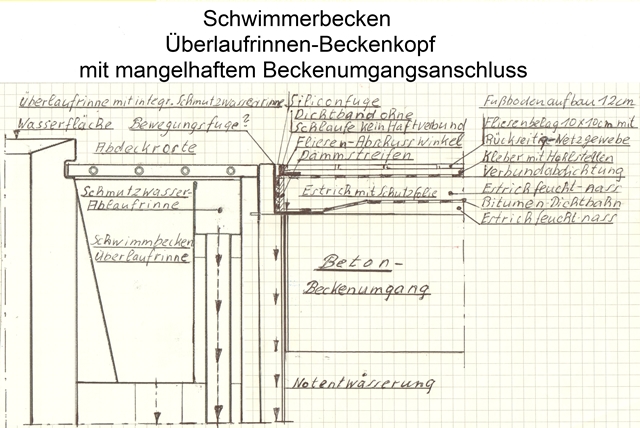 Schwimmerbecken
Überlaufrinnen-Beckenkopf
mit mangelhaftem Beckenumgangsanschluss
Überlaufrinne mit integr. Schmutzwasserrinne
Siliconfuge
Fußbodenaufbau 12cm
Wasserfläche
Bewegungsfuge?
Dichtband ohne
Schlaufe kein Haftverbund
Fliesenbelag 10x10cm mit
Rückzeitig-Netzgewebe
Abdeckroste
Fliesen-Abschusswinkel
Dämmstreifen
Kleber mit Hohlstellen
Verbundabdichtung
Schmutzwasser-
Ablaufrinne
Estrich mit Schutzfolie
Estrich feucht-nass
Bitumen-Dichtbahn
Estrich feucht-nass
Schwimmbecken
Überlaufrinne
Beton-
Beckenumgang
Notentwässerung